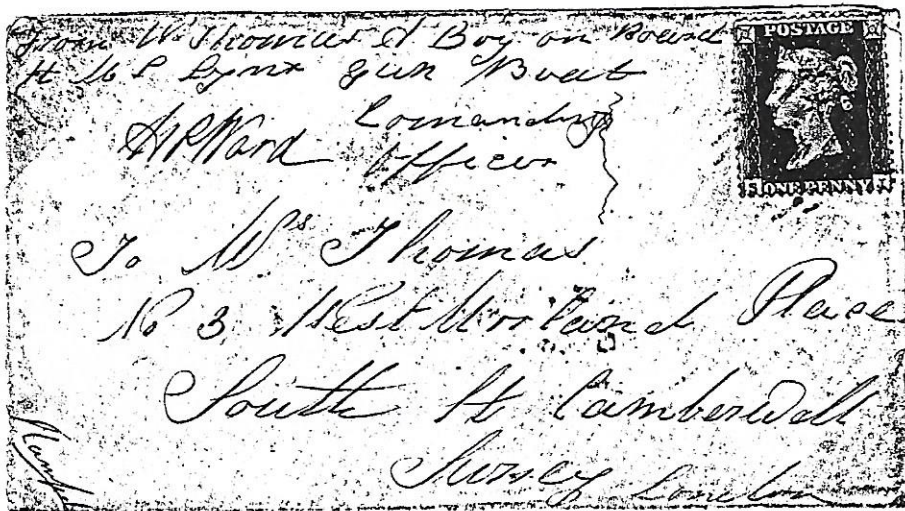 From W Thomas A Boy on Board
H M S Lynx Gun Boat
Comanding
HPWard Officer
POSTAGE
ONE PENNY
To Mrs Thomas
No 3 West Morland Place
South St Camberwell
Surrey London